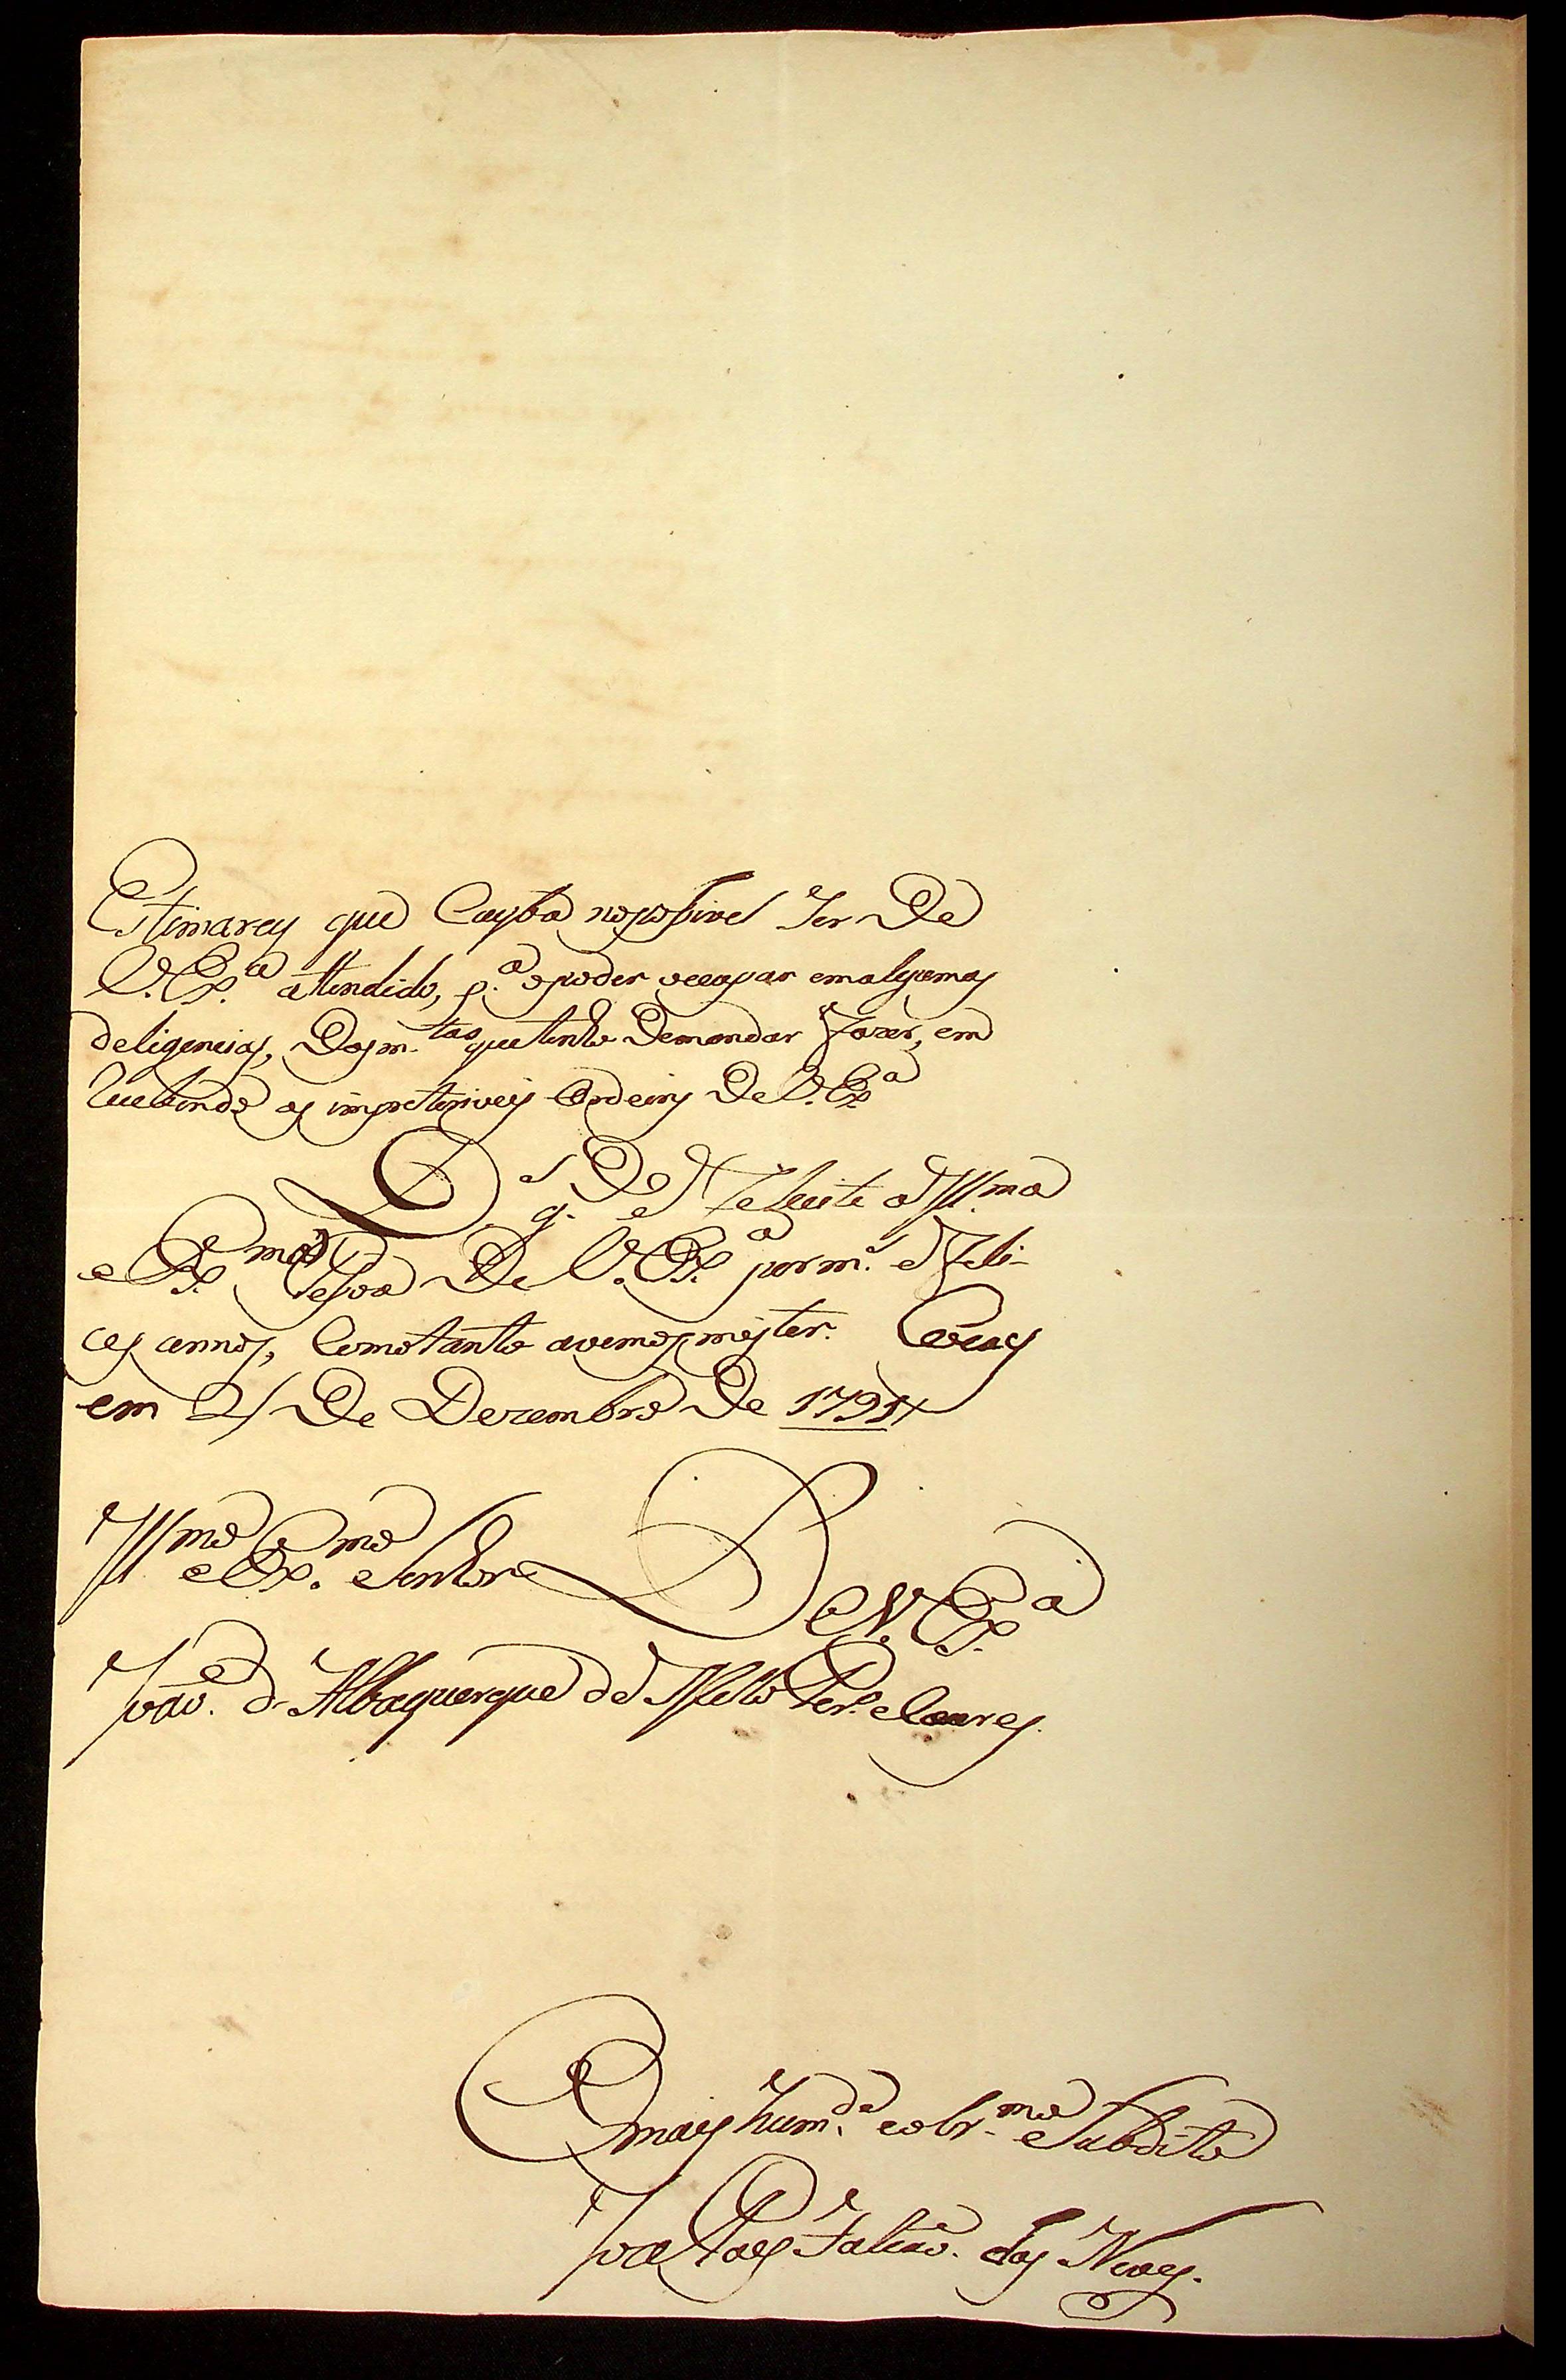 Estimarey que Cayba no posivel Ser De
V. Ex.ª attendido, p.ª o poder occupar em algumas
deligencias, Das m.tas que tenho De mandar Fazer, em
Recebendo as impreteriveis Ordeins De V. Ex.ª
D.s De g.e e Felecite a Ill.ma
e Ex.ma Pesoa De V. Ex.ª por m.s e Feli-
ces annos, Como tanto avemos mister.
em 21 De Dezembro De 1791
Ill.mo e Ex.mo Senhor
De V. Ex.ª
João d' Albuquerque de Mello Per.ª e Caceres.
O mais hum.de e obr.mo Subdito
João Paes Falcão das Neves.